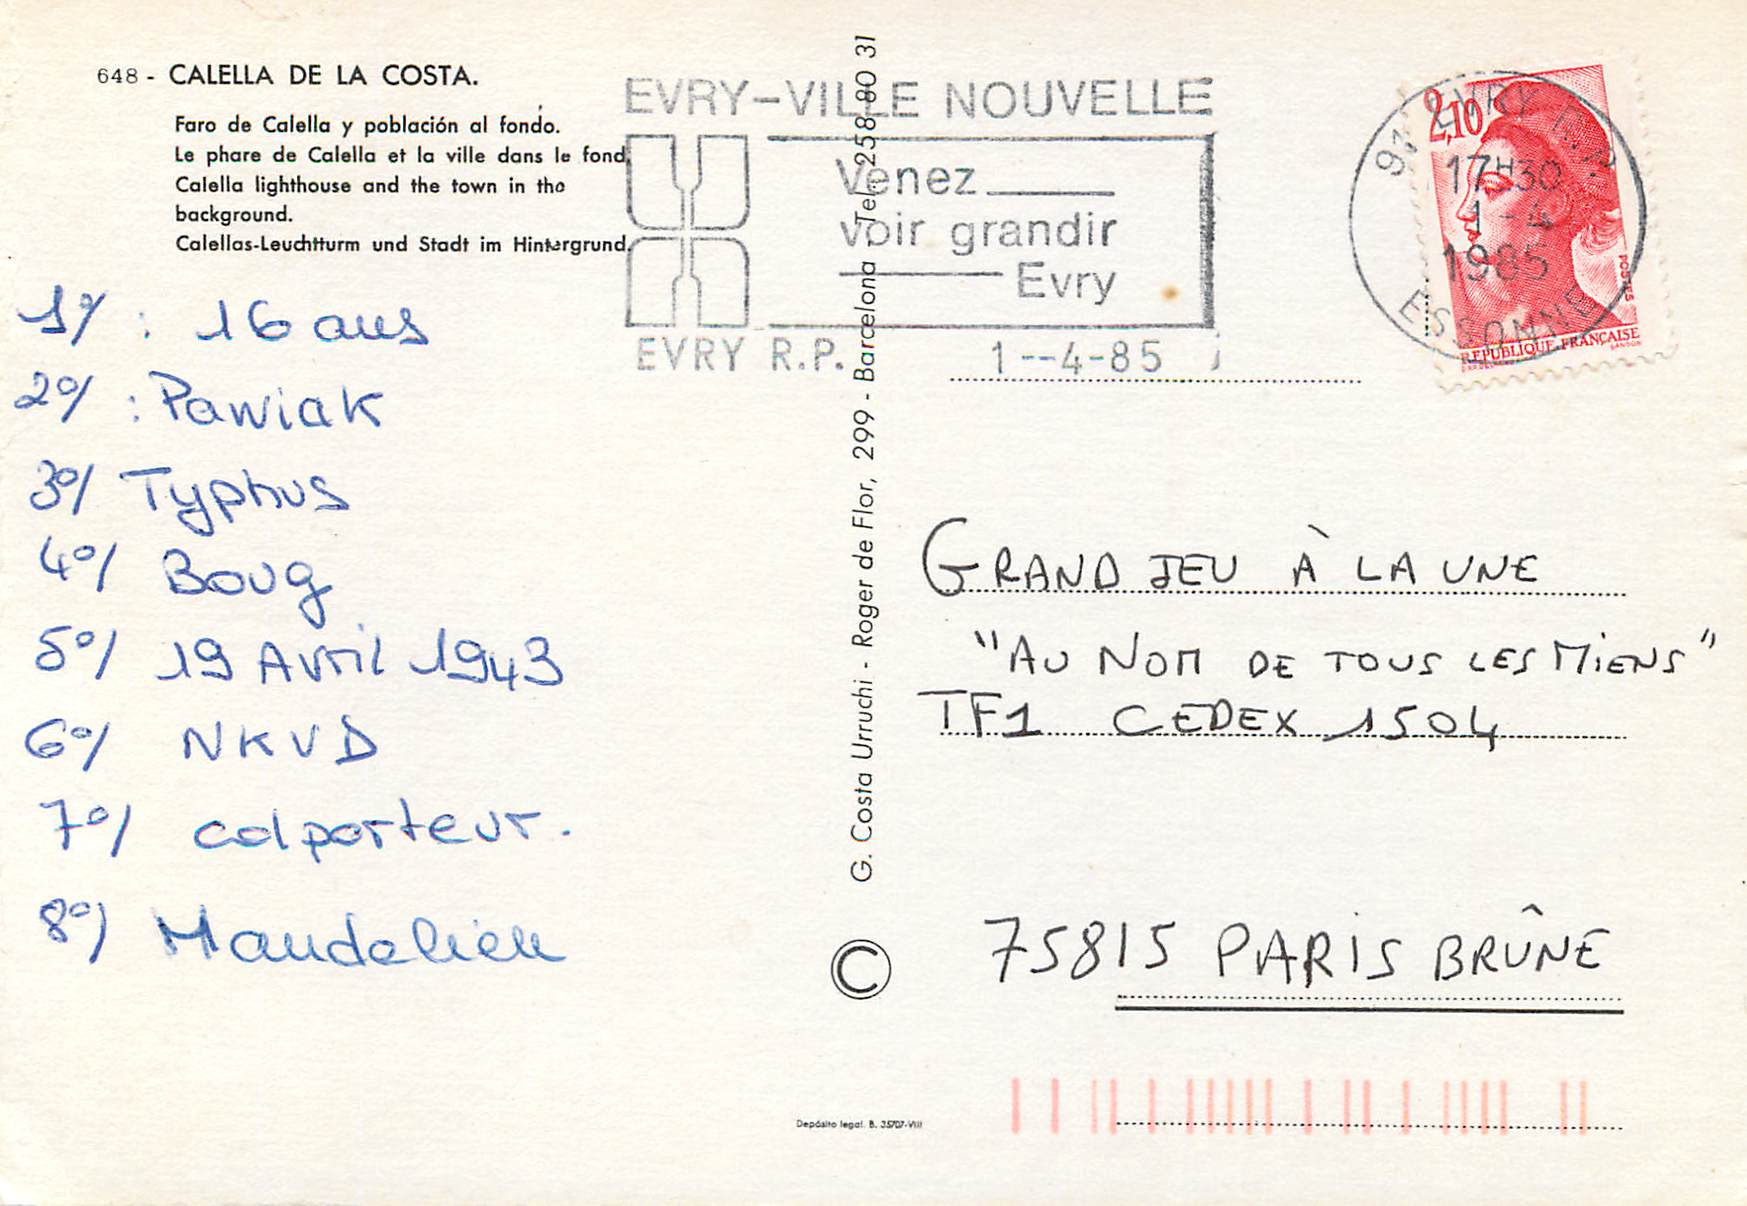 648 - CALELLA DE LA COSTA.
Faro de Calella y población al fondo.
Le phare de Calella et la ville dans le fond.
Calella lighthouse and the town in the
background.
Calellas-Leuchtturm und Stadt im Hintergrund.
1°/ : 16 ans
2°/ : Pawiak
3°/ Typhus
4°/ Boug
5°/ 19 Avril 1943
6°/ NKVD
7°/ colporteur.
8°/ Mandelieu
G. Costa Urruchi - Roger de Flor, 299 - Barcelona - Tel. 258 80 31
©
Depósito legal. B. 35707-VIII
EVRY-VILLE NOUVELLE
Venez
voir grandir
Evry
EVRY R.P. 1--4-85
2,10
POSTES
REPUBLIQUE FRANÇAISE
91 EVRY R.P.
17H30
1-4
1985
ESSONNE
GRAND JEU À LA UNE
"AU NOM DE TOUS LES MIENS"
TF1 CEDEX 1504
75815 PARIS BRÛNE